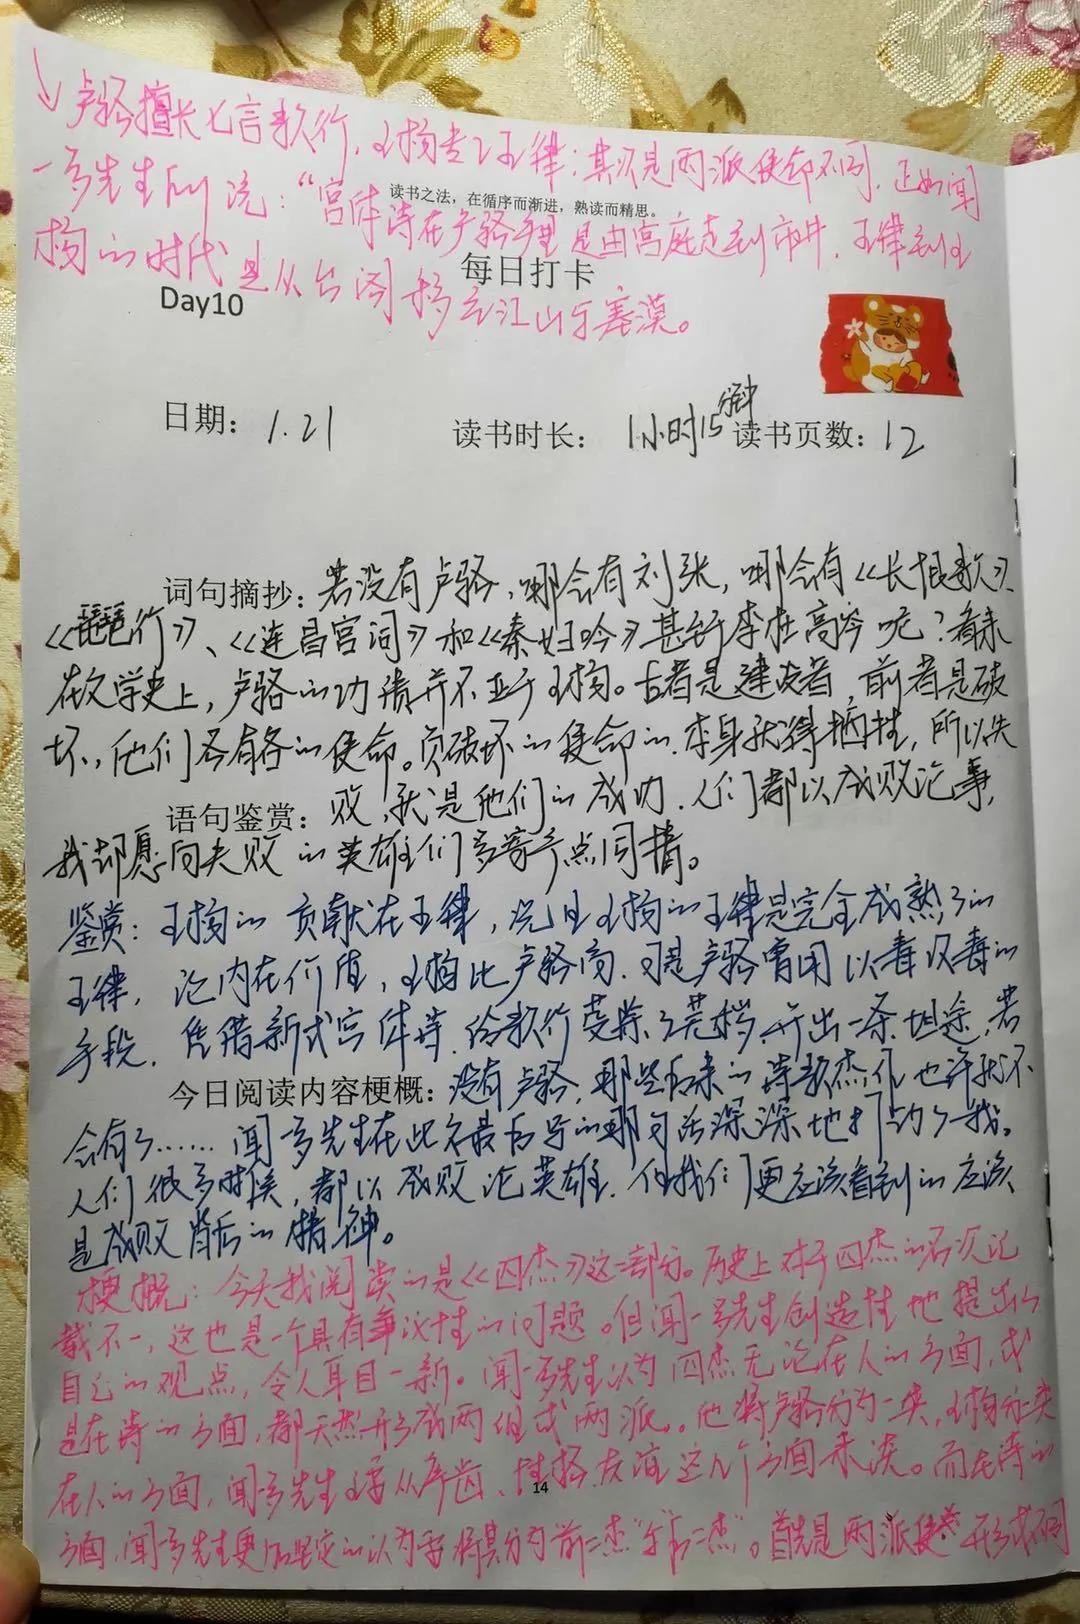 ↓卢骆擅长七言歌行，王杨专工五律；其次是两派使命不同，正如闻
一多先生所说：“宫体诗在卢骆手里是由宫庭走到市井，五律到王
杨的时代是从台阁移至江山与塞漠。
读书之法，在循序而渐进，熟读而精思。
每日打卡
Day10
日期：1.21 读书时长：1小时15分钟 读书页数：12
词句摘抄：若没有卢骆，哪会有刘张，哪会有《长恨歌》、
《琵琶行》、《连昌宫词》和《秦妇吟》甚至于李杜高岑呢？看来
在文学史上，卢骆的功绩并不亚于王杨。后者是建设者，前者是破
坏，他们各有各的使命。负破坏的使命的，本身就得牺牲，所以失
语句鉴赏：败，就是他们的成功，人们都以成败论事，
我却愿向失败的英雄们多寄予点同情。
鉴赏：王杨的贡献在五律，况且王杨的五律是完全成熟了的
五律，论内在价值，王杨比卢骆高，可是卢骆曾用以毒攻毒的
手段，凭借新式宫体诗，给歌行芟除了荒秽，开出一条坦途，若
今日阅读内容梗概：没有卢骆，那些后来的诗歌杰作也许就不
会有了……闻一多先生在此本最后写的那句话深深地打动了我。
人们很多时候，都以成败论英雄，但我们更应该看到的应该
是成败背后的精神。
梗概：今天我阅读的是《四杰》这一部分。历史上对于四杰的名次记
载不一，这也是一个具有争议性的问题。但闻一多先生创造性地提出了
自己的观点，令人耳目一新。闻一多先生认为四杰无论在人的方面，或
是在诗的方面，都天然形成两组或两派。他将卢骆分为一类，王杨分一类
在人的方面，闻一多先生主要从年齿、性格、友谊这几个方面来谈。而在诗的
方面，闻一多先生更加坚定的认为要将其分为“前二杰”与“后二杰”。首先是两派使 形式不同
14